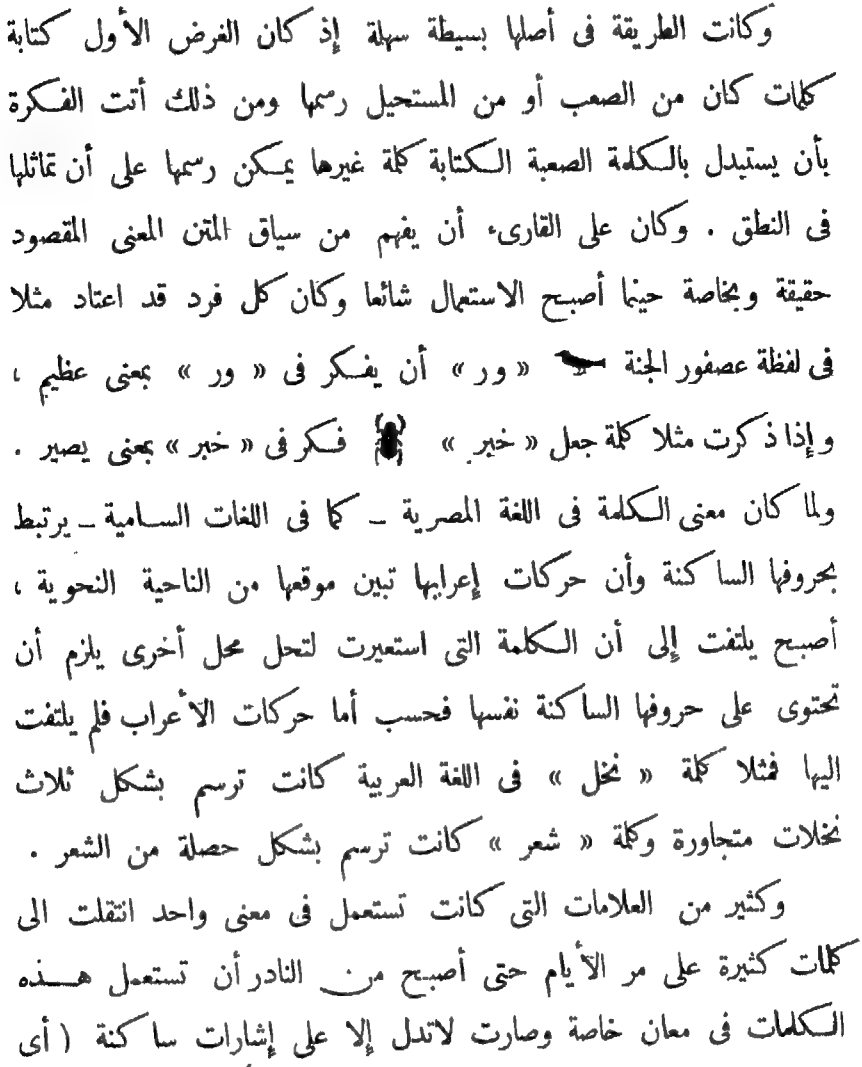 وكانت الطريقة فى أصلها بسيطة سهلة إذ كان الغرض الأول كتابة
كلمات كان من الصعب أو من المستحيل رسمها ومن ذلك أتت الفكرة
بأن يستبدل بالكلمة الصعبة الكتابة كلمة غيرها يمكن رسمها على أن تماثلها
فى النطق . وكان على القارىء أن يفهم من سياق المتن المعنى المقصود
حقيقة وبخاصة حينما أصبح الاستعمال شائعا وكان كل فرد قد اعتاد مثلا
فى لفظة عصفور الجنة « ور » أن يفكر فى « ور » بمعنى عظيم ،
وإذا ذكرت مثلا كلمة جعل « خبر » فكر فى « خبر » بمعنى يصير .
ولما كان معنى الكلمة فى اللغة المصرية ــ كما فى اللغات السامية ــ يرتبط
بحروفها الساكنة وأن حركات إعرابها تبين موقعها من الناحية النحوية ،
أصبح يلتفت إلى أن الكلمة التى استعيرت لتحل محل أخرى يلزم أن
تحتوى على حروفها الساكنة نفسها فحسب أما حركات الأعراب فلم يلتفت
اليها فمثلا كلمة « نخل » فى اللغة العربية كانت ترسم بشكل ثلاث
نخلات متجاورة وكلمة « شعر » كانت ترسم بشكل حصلة من الشعر .
وكثير من العلامات التى كانت تستعمل فى معنى واحد انتقلت الى
كلمات كثيرة على مر الأيام حتى أصبح من النادر أن تستعمل هذه
الكلمات فى معان خاصة وصارت لاتدل إلا على إشارات ساكنة ( أى